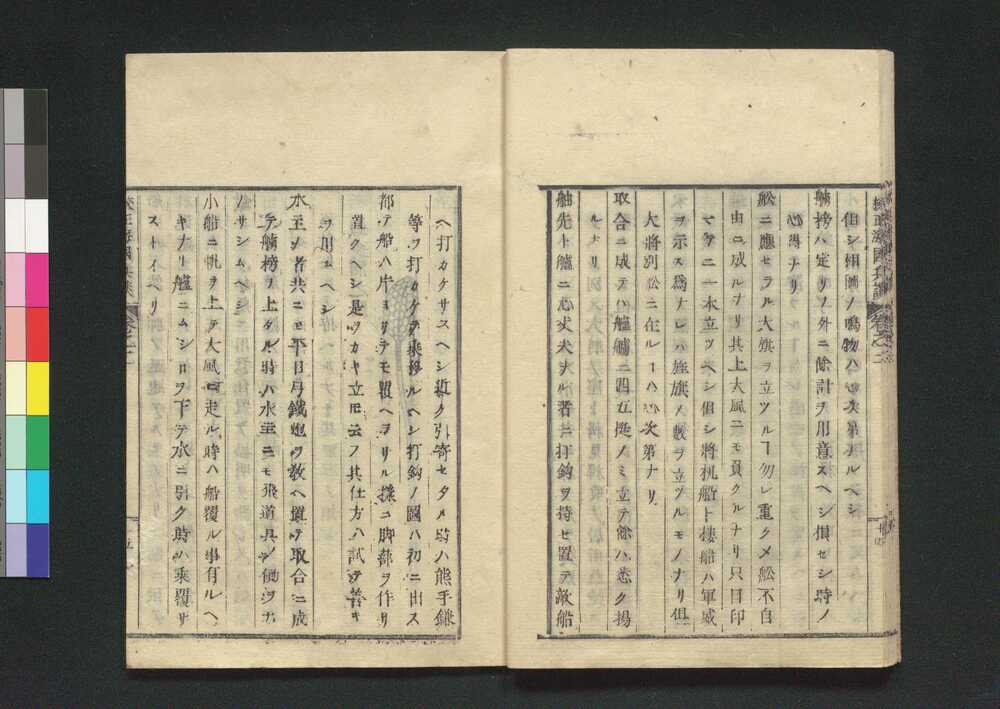 校正海國兵談 卷之二
但シ相圖ノ鳴物ハ 次第ナルヘシ
艣榜ハ定リノ外ニ餘計ヲ用意スヘシ損セシ時ノ
心得ナリ
舩ニ應セラル大旗ヲ立ツルヿ勿レ重クメ舩不自
由ニ成ルナリ其上大風ニモ負クルナリ只目印
マテニ一本立ツヘシ但シ將机船ト樓船ハ軍威
ヲ示ス爲ナレハ旌旗ノ數ヲ立ツルモノナリ但
大將別舩ニ在ルヿハ 次第ナリ
取合ニ成テハ艫艣二四五挺ノミ立テ餘ハ悉ク揚
ルナリ
舳先ト艫ニ心丈夫ナル者ニ打鈎ヲ持セ置テ敵船
ヘ打カケサスヘシ近ク引寄セタル時ハ熊手鎌
等ヲ打カケテ乘移ルヘシ打鈎ノ圖ハ初ニ出ス
都テ船ハ片ヨリテモ覆ヘヲリル樣ニ脚部ヲ作リ
置クヘシ是ヲカキ立ト云フ其仕方ハ試テ善キ
ヲ用ユヘシ
水主ノ者共ニモ平日弓鐵炮ヲ教ヘ置ヲ取合ニ成
テ艣榜ヲ上タル時ハ水主ニモ飛道具ノ働ヲナ
サシムヘシ
小船ニ帆ヲ上テ大風ニ走ル時ハ船覆ル事有ルヘ
キナリ艫ニムシロヲ下テ水ニ引ク時ハ乘覆リ
ストイヘリ
校正海國兵談 卷之二 五